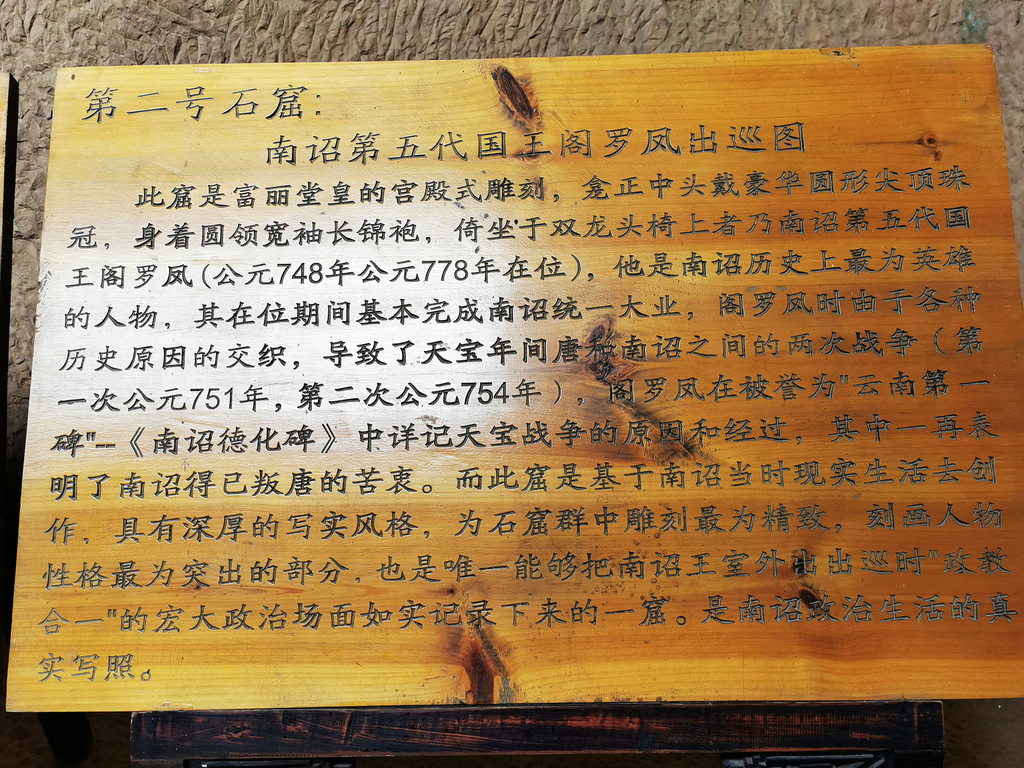 第二号石窟：
南诏第五代国王阁罗凤出巡图
此窟是富丽堂皇的宫殿式雕刻，龛正中头戴豪华圆形尖顶珠
冠，身着圆领宽袖长锦袍，倚坐于双龙头椅上者乃南诏第五代国
王阁罗凤(公元748年公元778年在位)，他是南诏历史上最为英雄
的人物，其在位期间基本完成南诏统一大业，阁罗凤时由于各种
历史原因的交织，导致了天宝年间唐和南诏之间的两次战争（第
一次公元751年，第二次公元754年），阁罗凤在被誉为"云南第一
碑"--《南诏德化碑》中详记天宝战争的原因和经过，其中一再表
明了南诏得已叛唐的苦衷。而此窟是基于南诏当时现实生活去创
作，具有深厚的写实风格，为石窟群中雕刻最为精致，刻画人物
性格最为突出的部分，也是唯一能够把南诏王室外出出巡时"政教
合一"的宏大政治场面如实记录下来的一窟。是南诏政治生活的真
实写照。